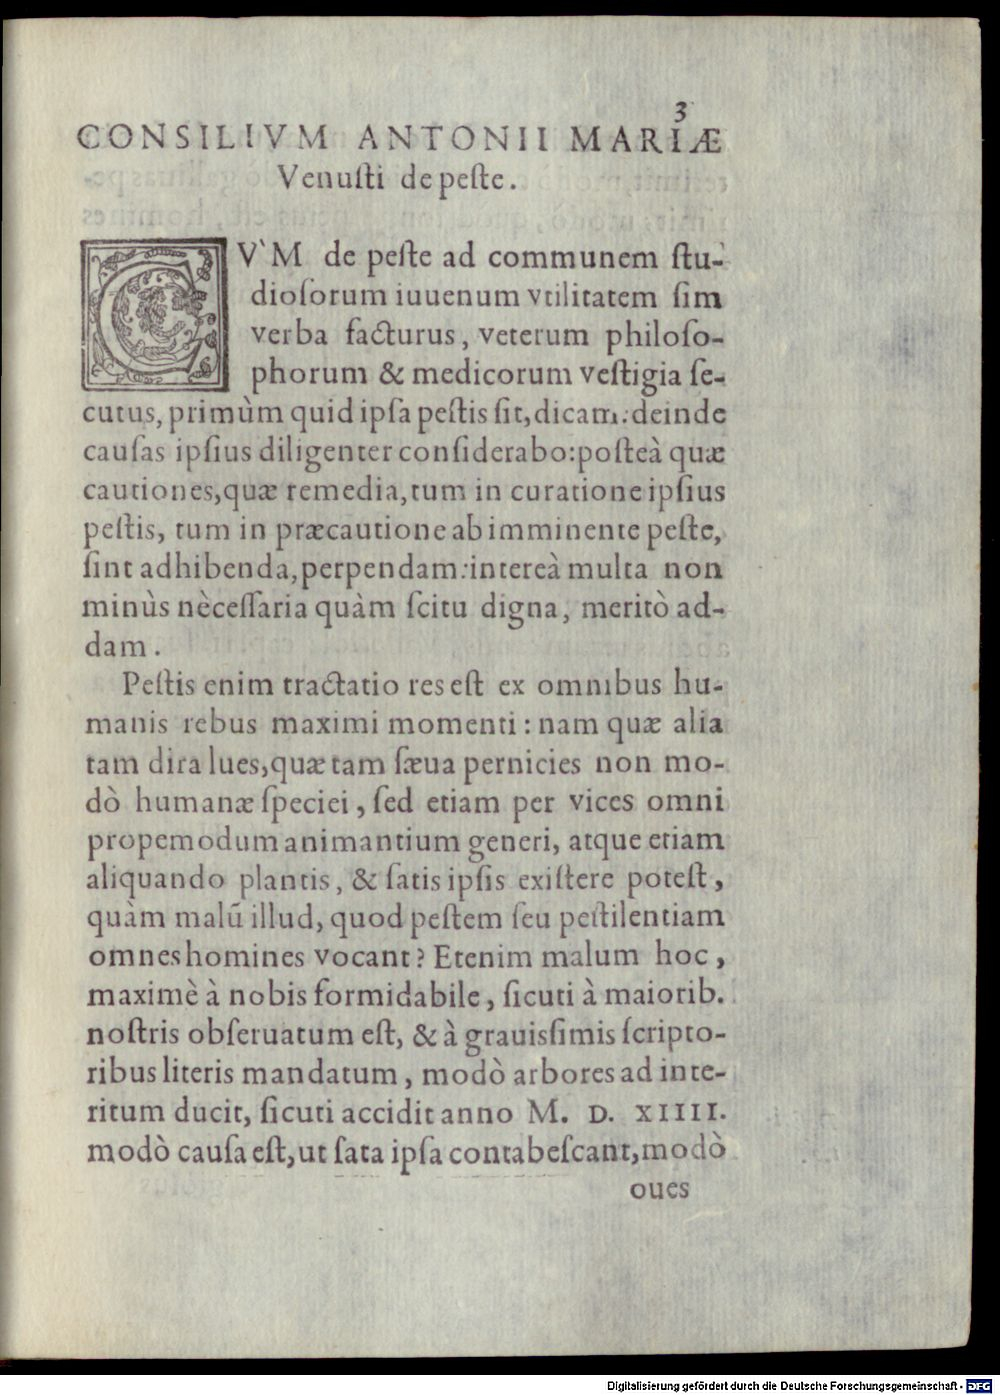 3
CONSILIVM ANTONII MARIÆ
Venuſti de peſte.
CV̀M de peſte ad communem ſtu-
dioſorum iuuenum vtilitatem ſim
verba facturus, veterum philoſo-
phorum & medicorum veſtigia ſe-
cutus, primùm quid ipſa peſtis ſit, dicam: deinde
cauſas ipſius diligenter conſiderabo: poſteà quæ
cautiones, quæ remedia, tum in curatione ipſius
peſtis, tum in præcautione ab imminente peſte,
ſint adhibenda, perpendam: intereà multa non
minùs nèceſſaria quàm ſcitu digna, meritò ad-
dam.
Peſtis enim tractatio res eſt ex omnibus hu-
manis rebus maximi momenti: nam quæ alia
tam dira lues, quæ tam ſæua pernicies non mo-
dò humanæ ſpeciei, ſed etiam per vices omni
propemodum animantium generi, atque etiam
aliquando plantis, & ſatis ipſis exiſtere poteſt,
quàm malū illud, quod peſtem ſeu peſtilentiam
omnes homines vocant? Etenim malum hoc,
maximè à nobis formidabile, ſicuti à maiorib.
noſtris obſeruatum eſt, & à grauiſſimis ſcripto-
ribus literis mandatum, modò arbores ad inte-
ritum ducit, ſicuti accidit anno M. D. XIIII.
modò cauſa eſt, ut ſata ipſa contabeſcant, modò
oues
Digitalisierung gefördert durch die Deutsche Forschungsgemeinschaft - DFG